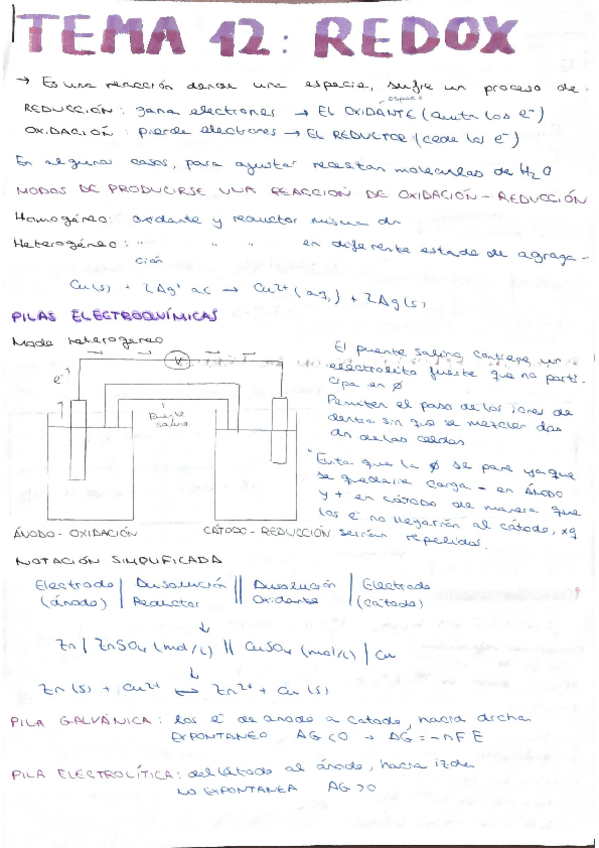 TEMA 12: REDOX
→ Es una reacción donde una especie, sufre un proceso de.
especie
REDUCCIÓN: gana electrones → EL OXIDANTE (quita los e⁻)
OXIDACIÓN: pierde electrones → EL REDUCTOR (cede los e⁻)
En algunos casos, para ajustar necesitan moléculas de H₂O
MODOS DE PRODUCIRSE UNA REACCION DE OXIDACIÓN - REDUCCIÓN
Homogéneo: oxidante y reductor misma dn
Heterogéneo: " " " en diferente estado de agraga-
ción
Cu(s) + 2Ag⁺ ac → Cu²⁺(aq,) + 2Ag(s)
PILAS ELECTROQUÍMICAS
Modo heterogeneo
V
e⁻¹
Puente
salino
ÁNODO - OXIDACIÓN
CÁTODO - REDUCCIÓN
El puente salino contiene un
electrolito fuerte que no parti-
cipa en ∅
Permiten el paso de los iones de
dentro sin que se mezclen las
dn de las celdas
"Evita que la ∅ se pare ya que
se quedaría carga - en ÁNODO
y + en CÁTODO de manera que
los e⁻ no llegarían al cátodo, xq
serían repelidos.
NOTACIÓN SIMPLIFICADA
Electrodo | Disolución || Disolución | Electrodo
(ánodo) | Reductor || Oxidante | (cátodo)
↓
Zn | ZnSO₄ (mol/L) || CuSO₄ (mol/L) | Cu
↓
Zn(s) + Cu²⁺ ⇌ Zn²⁺ + Cu(s)
PILA GALVÁNICA: los e⁻ de anodo a catodo, hacia drcha
EXPONTANEO ΔG<0 → ΔG = -nFE
PILA ELECTROLÍTICA: del cátodo al ánodo, hacia izda
NO EXPONTANEA ΔG>0